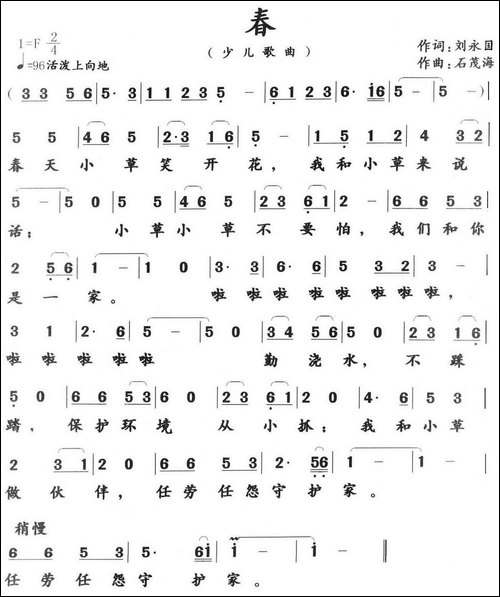 春
(少儿歌曲)
1=F 2/4
♩=96 活泼上向地
作词:刘永国
作曲:石茂海
( 3 3 5 6 | 3· 5 | 1 2 3 5 | 5 - | 6 1 2 3 | 6· 1 6 | 5 - | 5 - ) |
5 5 | 4 6 5 | 2·3 1 6 | 5 - | 1 5 | 1 2 | 4 3 2 |
春 天 小 草 笑 开 花, 我 和 小 草 来 说
5 - | 5 0 | 5 5 | 4 6 5 | 2 3 6 1 | 2 - | 6 6 5 3 |
话; 小 草 小 草 不 要 怕, 我 们 和 你
2 5 6 | 1 - | 1 0 | 3· 3 | 6· 6 | 5 3 2 | 3 - |
是 一 家。 啦 啦 啦 啦 啦 啦 啦,
3 1 | 2· 6 | 5 - | 5 0 | 3 4 5 6 | 5 0 | 2 3 1 6 |
啦 啦 啦 啦 啦 勤 浇 水, 不 踩
5 0 | 6 6 5 3 | 2 0 | 2 3 6 1 | 2 0 | 4· 6 | 5 3 |
踏, 保 护 环 境 从 小 抓; 我 和 小 草
2 3 1 | 2 0 | 6 6 5 3 | 5 2 | 2· 5 6 | 1 - | 1 - |
做 伙 伴, 任 劳 任 怨 守 护 家。
稍慢
6 6 5 3 | 5· 6 i | i - | i - ‖
任 劳 任 怨 守 护 家。